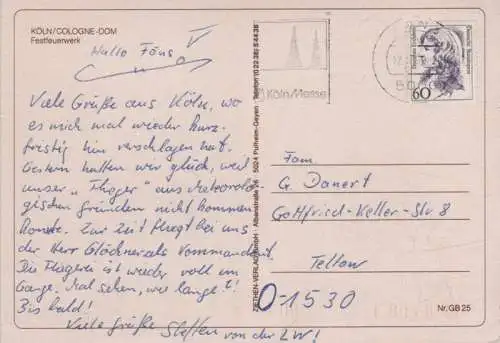 KÖLN/COLOGNE-DOM
Festfeuerwerk
Hallo Föns
Viele Grüße aus Köln, wo
es mich mal wieder kurz-
fristig hin verschlagen hat.
Gestern hatten wir glück, weil
unser "Flieger" aus Meteorolo-
gischen Gründen nicht kommen
konnte. Zur Zeit fliegt bei uns
der Herr Glöckner als Kommandant.
Die Fliegerei ist wieder voll im
Gange. Mal sehen, wie lange?!
Bis bald!
Viele Grüße Steffen von der LW!
ZIETHEN-VERLAG GmbH · Albertstraße 56 · 5024 Pulheim-Geyen · Telefon (0 22 38) 5 44 36
Köln/Messe
Deutsche Bundespost
60
Fam.
G. Danert
Gottfried-Keller-Str 8
Teltow
O-1530
Nr. GB 25